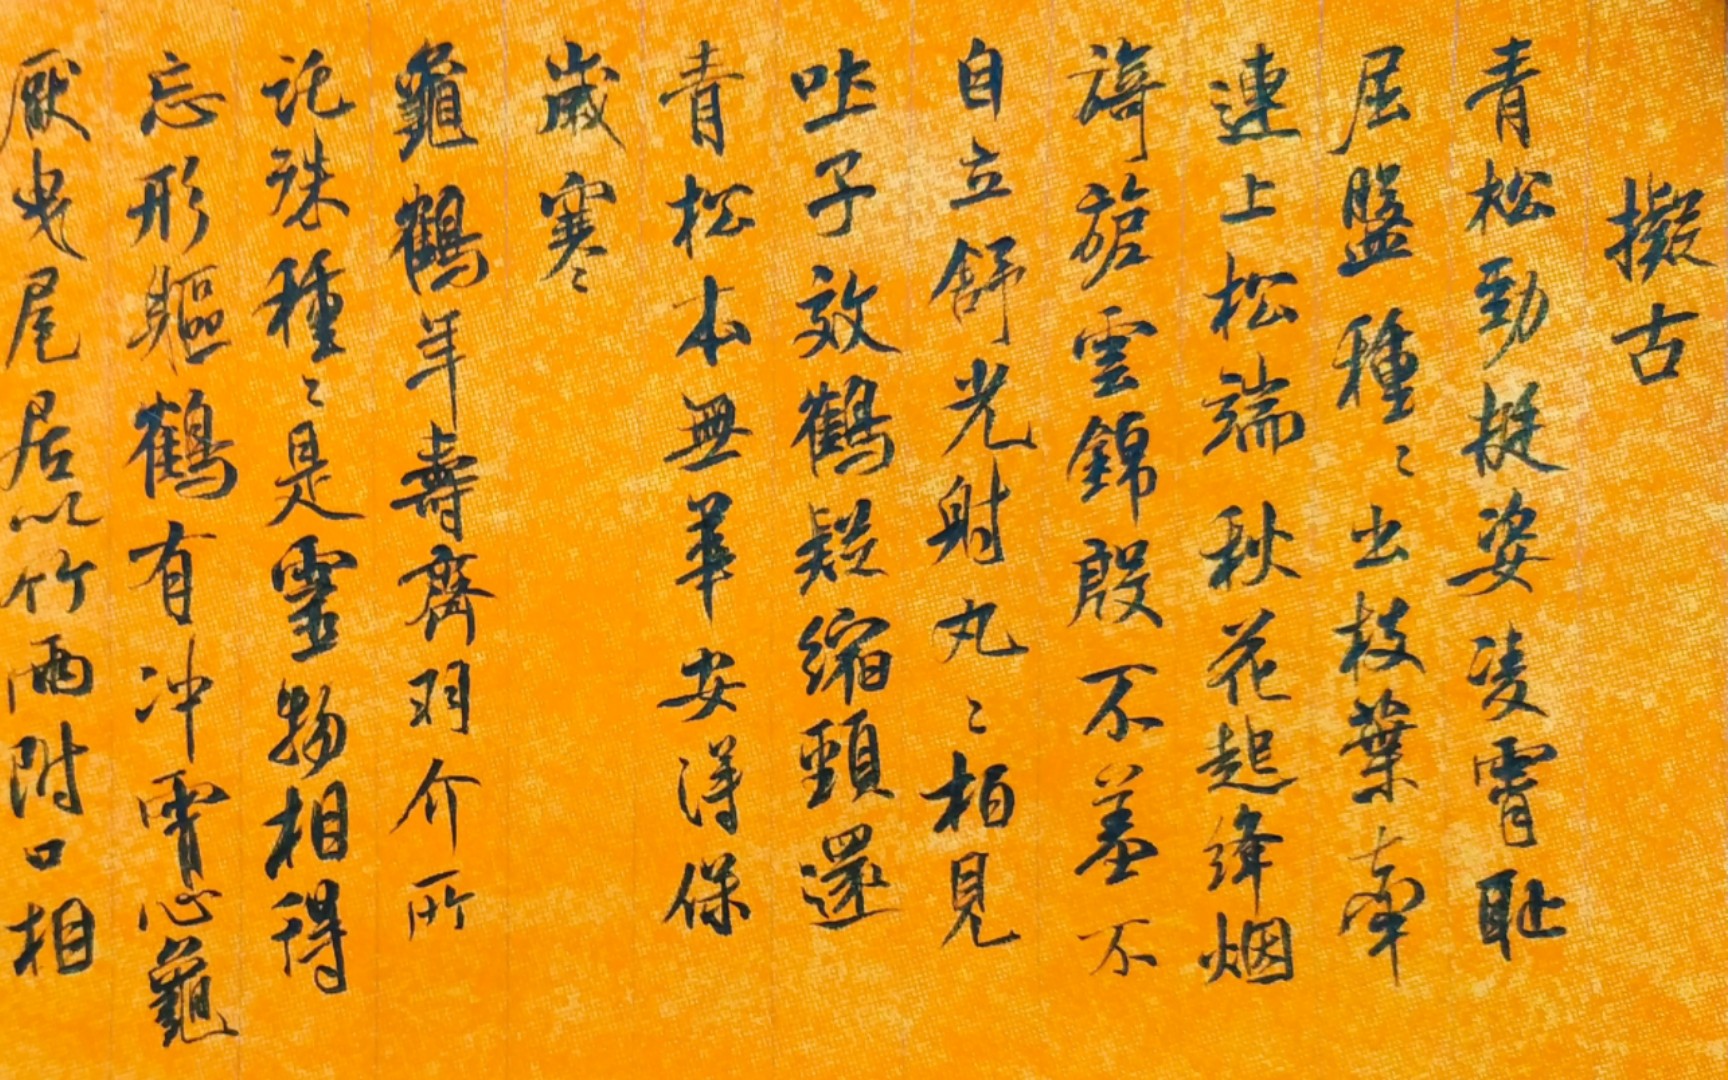 擬古
青松勁挺姿凌霄恥
屈盤種〻出枝葉牽
連上松端秋花起絳烟
旖旎雲錦殷不羞不
自立舒光射丸〻柏見
吐子效鶴疑縮頸還
青松本無華安得保
歲寒
龜鶴年壽齊羽介所
託殊種〻是靈物相得
忘形軀鶴有冲霄心龜
厭曳尾居以竹兩附口相